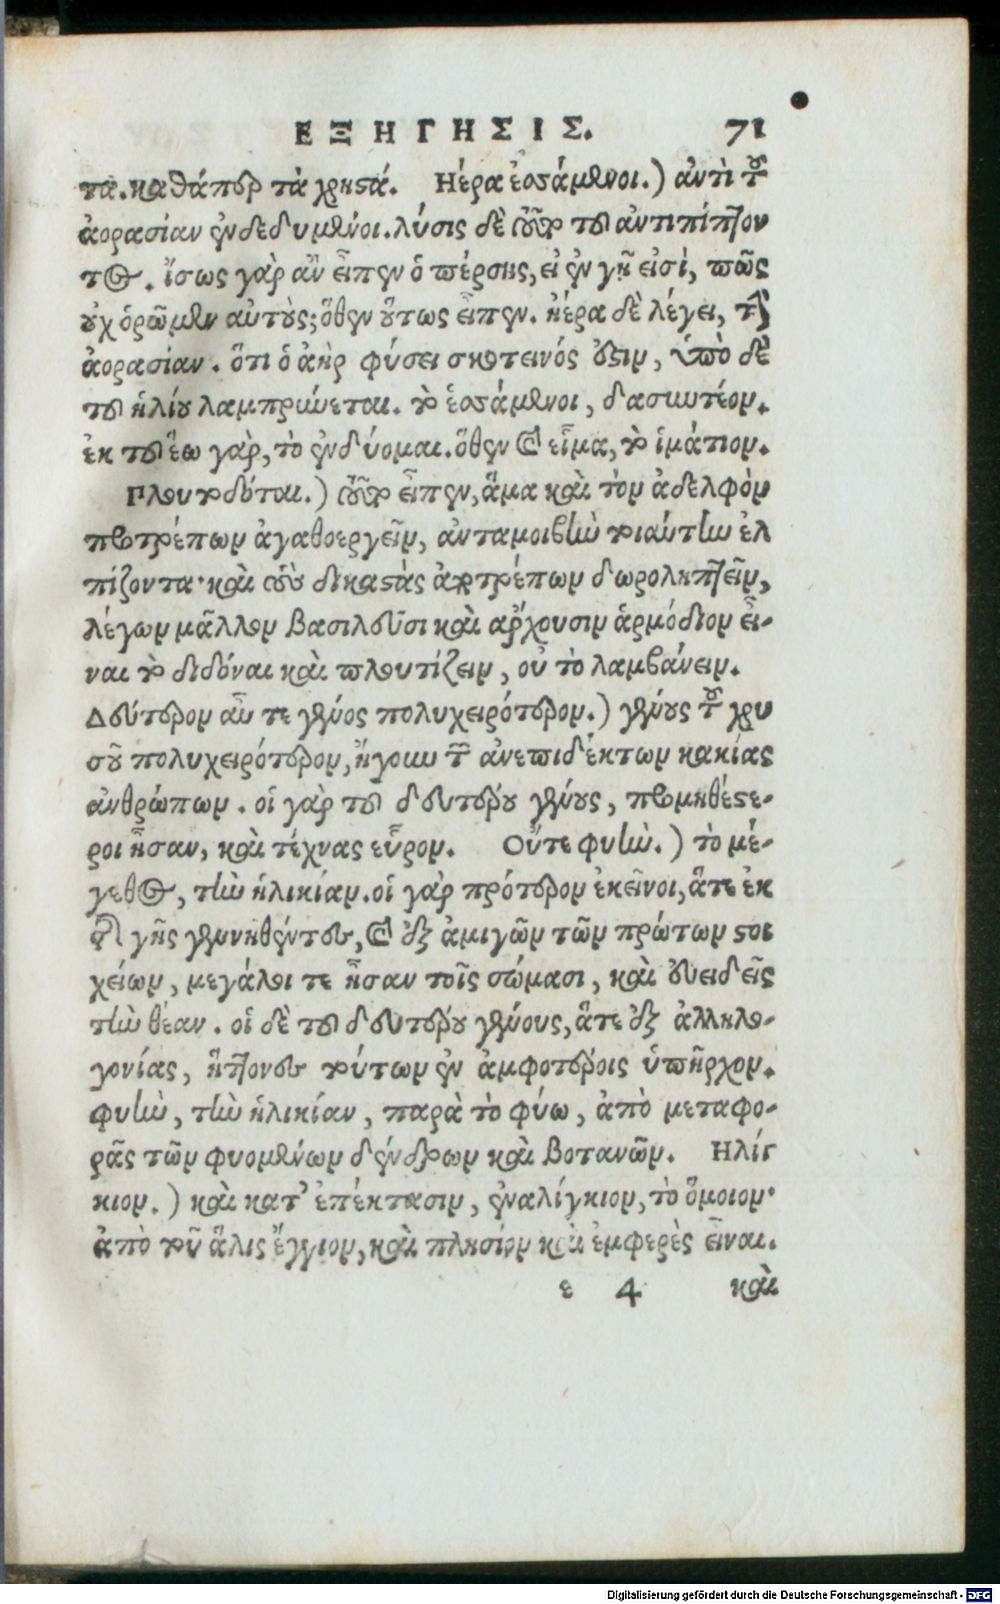 ΕΞΗΓΗΣΙΣ. 71
τα. καθάπερ τὰ χρηστά. Ηέρα ἑσσάμενοι.) ἀντὶ τοῦ
ἀορασίαν ἐνδεδυμένοι. λύσις δὲ τοῦτο τοῦ ἀντιπίπτον
τος. ἴσως γὰρ ἂν εἶπεν ὁ πέρσης, εἰ ἐν γῇ εἰσί, πῶς
οὐχ ὁρῶμεν αὐτούς; ὅθεν οὕτως εἶπεν. ἠέρα δὲ λέγει, τὴν
ἀορασίαν. ὅτι ὁ ἀὴρ φύσει σκοτεινός ἐστιν, ὑπὸ δὲ
τοῦ ἡλίου λαμπρύνεται. τὸ ἑσσάμενοι, δασυντέον.
ἐκ τοῦ ἕω γὰρ, τὸ ἐνδύομαι. ὅθεν καὶ εἷμα, τὸ ἱμάτιον.
Πλουτοδόται.) τοῦτο εἶπεν, ἅμα καὶ τὸν ἀδελφὸν
προτρέπων ἀγαθοεργεῖν, ἀνταμοιβὴν τοιαύτην ἐλ
πίζοντα· καὶ τοὺς δικαστὰς ἀποτρέπων δωροληπτεῖν,
λέγων μᾶλλον βασιλεῦσι καὶ ἄρχουσιν ἁρμόδιον εἶ-
ναι τὸ διδόναι καὶ πλουτίζειν, οὐ τὸ λαμβάνειν.
Δεύτερον αὖ τε γένος πολυχειρότερον.) γένους τοῦ χρυ
σοῦ πολυχειρότερον, ἤγουν τῶν ἀνεπιδέκτων κακίας
ἀνθρώπων. οἱ γὰρ τοῦ δευτέρου γένους, προμηθέστε-
ροι ἦσαν, καὶ τέχνας εὗρον. Οὔτε φυὴν.) τὸ μέ-
γεθος, τὴν ἡλικίαν. οἱ γὰρ πρότερον ἐκεῖνοι, ἅτε ἐκ
τῆς γῆς γεννηθέντες, καὶ ἐξ ἀμιγῶν τῶν πρώτων στοι
χείων, μεγάλοι τε ἦσαν τοῖς σώμασι, καὶ εὐειδεῖς
τὴν θέαν. οἱ δὲ τοῦ δευτέρου γένους, ἅτε ἐξ ἀλληλο-
γονίας, ἥττονες τούτων ἐν ἀμφοτέροις ὑπῆρχον.
φυὴν, τὴν ἡλικίαν, παρὰ τὸ φύω, ἀπὸ μεταφο-
ρᾶς τῶν φυομένων δένδρων καὶ βοτανῶν. Ηλίγ
κιον.) καὶ κατ' ἐπέκτασιν, ἐναλίγκιον, τὸ ὅμοιον·
ἀπὸ τοῦ ἅλις ἔγγιον, καὶ πλησίον καὶ ἐμφερὲς εἶναι.
e 4 καὶ
Digitalisierung gefördert durch die Deutsche Forschungsgemeinschaft - DFG